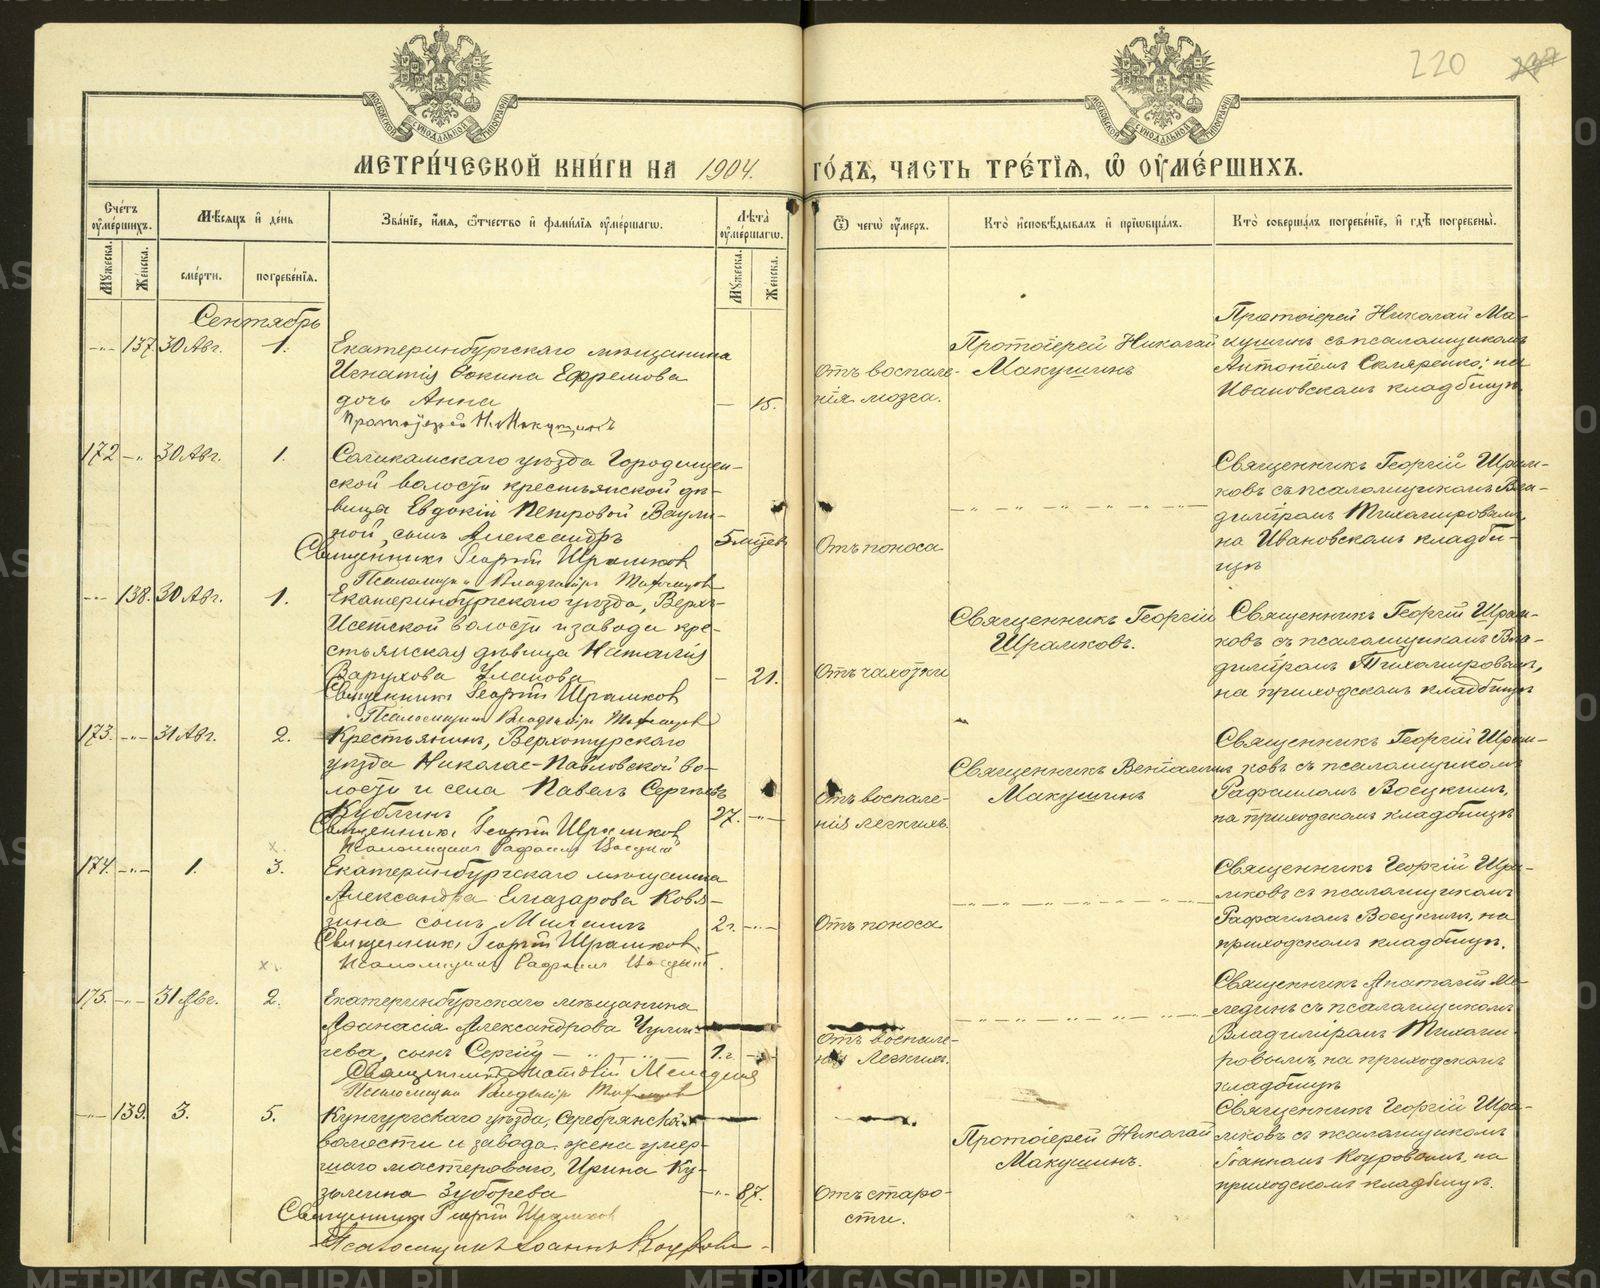 220
МЕТРИ́ЧЕСКОЙ КНИ́ГИ НА 1904.
ГО́ДЪ, ЧАСТЬ ТРЕ́ТІѦ, Ѡ҆ ОУ҆МЕ́РШИХЪ.
Сче́тъ оу҆ме́ршихъ.
Мѣ́сяцъ и҆ де́нь
Зва́ніе, и҆́мя, ѻ҆́тчество и҆ фами́лія оу҆ме́ршагѡ.
Лѣ́та оу҆ме́ршагѡ.
Ѿ чегѡ̀ оу҆́меръ.
Кто̀ и҆сповѣ́дывалъ и҆ прїѡбща́лъ.
Кто̀ соверша́лъ погребе́ніе, и҆ гдѣ̀ погребены̀.
Мꙋ́жеска.
Же́нска.
сме́рти.
погребе́нія.
Мꙋ́жеска.
Же́нска.
Сентябрь
137 30 Авг. 1.
Екатеринбургскаго мѣщанина
Игнатія Ѳокина Ефремова
дочь Анна
15.
Протоіерей Н. Макушинъ
Отъ воспале-
нія мозга.
Протоіерей Николай
Макушинъ
Протоіерей Николай Ма-
кушинъ съ псаломщикомъ
Антоніемъ Скляренко; на
Ивановскомъ кладбищѣ
172 30 Авг. 1.
Соликамскаго уѣзда Городищен-
ской волости крестьянской дѣ-
вицы Евдокіи Петровой Ваули-
ной, сынъ Александръ
5 мѣсяцев
Священникъ Георгій Шрамковъ
Псаломщикъ Владиміръ Тихомировъ
Отъ поноса
Священникъ Георгій Шрам-
ковъ съ псаломщикомъ Вла-
диміромъ Тихомировымъ,
на Ивановскомъ кладби-
щѣ
138. 30 Авг. 1.
Екатеринбургскаго уѣзда, Верхъ-
Исетской волости и завода кре-
стьянская дѣвица Наталія
Варухова Уланова
21.
Священникъ Георгій Шрамковъ
Псаломщикъ Владиміръ Тихомировъ
Отъ чахотки
Священникъ Георгій
Шрамковъ.
Священникъ Георгій Шрам-
ковъ съ псаломщикомъ Вла-
диміромъ Тихомировымъ,
на приходскомъ кладбищѣ
173. 31 Авг. 2.
Крестьянинъ, Верхотурскаго
уѣзда Николае-Павловской во-
лости и села Павелъ Сергѣевъ
Кублинъ
27.
Священникъ Георгій Шрамковъ
Псаломщикъ Рафаилъ Восцкій
Отъ воспале-
нія легкихъ.
Священникъ Веніаминъ
Макушинъ
Священникъ Георгій Шрам-
ковъ съ псаломщикомъ
Рафаиломъ Восцкимъ,
на приходскомъ кладбищѣ
174. 1. 3.
Екатеринбургскаго мѣщанина
Александра Елизарова Ковя-
зина сынъ Михаилъ
2 г.
Священникъ Георгій Шрамковъ.
Псаломщикъ Рафаилъ Восцкій.
Отъ поноса
Священникъ Георгій Шра-
мковъ съ псаломщикомъ
Рафаиломъ Восцкимъ, на
приходскомъ кладбищѣ.
175. 31 Авг. 2.
Екатеринбургскаго мѣщанина
Аѳанасія Александрова
чева, сынъ Сергій
1 г.
Священникъ Анатолій Мелединъ
Псаломщикъ Владиміръ Тихомировъ
Отъ воспале-
нія легкихъ.
Священникъ Анатолій Ме-
лединъ съ псаломщикомъ
Владиміромъ Тихоми-
ровымъ, на приходскомъ
кладбищѣ
139. 3. 5.
Кунгурскаго уѣзда, Серебрянской
волости и завода жена умер-
шаго мастероваго, Ирина Ку-
зьмина Зуборева
87.
Священникъ Георгій Шрамковъ
Псаломщикъ Іоаннъ Коуровъ
Отъ старо-
сти.
Протоіерей Николай
Макушинъ.
Священникъ Георгій Шра-
мковъ съ псаломщикомъ
Іоанномъ Коуровымъ, на
приходскомъ кладбищѣ.
METRIKI.GASO-URAL.RU